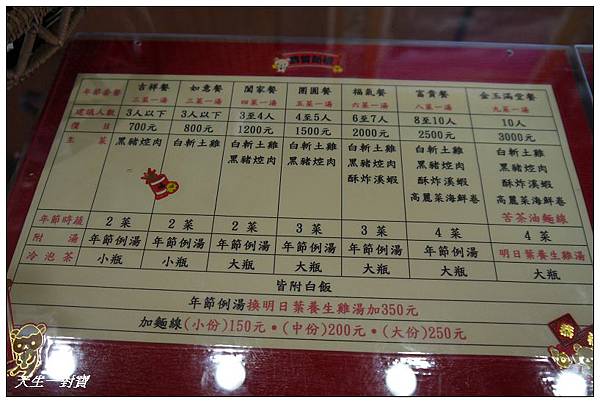 恭賀新禧
年節套餐 吉祥餐 如意餐 闔家餐 團圓餐 福氣餐 富貴餐 金玉滿堂餐
三菜一湯 三菜一湯 四菜一湯 五菜一湯 六菜一湯 八菜一湯 九菜一湯
建議人數 3人以下 3人以下 3至4人 4至5人 6至7人 8至10人 10人
價目 700元 800元 1200元 1500元 2000元 2500元 3000元
主菜 黑豬焢肉 白斬土雞 白斬土雞 白斬土雞 白斬土雞 白斬土雞 白斬土雞
黑豬焢肉 黑豬焢肉 黑豬焢肉 黑豬焢肉 黑豬焢肉
酥炸溪蝦 酥炸溪蝦 酥炸溪蝦
高麗菜海鮮卷 高麗菜海鮮卷
苦茶油麵線
年節時蔬 2菜 2菜 2菜 3菜 3菜 4菜 4菜
附湯 年節例湯 年節例湯 年節例湯 年節例湯 年節例湯 年節例湯 明日葉養生雞湯
冷泡茶 小瓶 小瓶 大瓶 大瓶 大瓶 大瓶 大瓶
皆附白飯
年節例湯換明日葉養生雞湯加350元
加麵線(小份)150元•(中份)200元•(大份)250元
天生一對寶